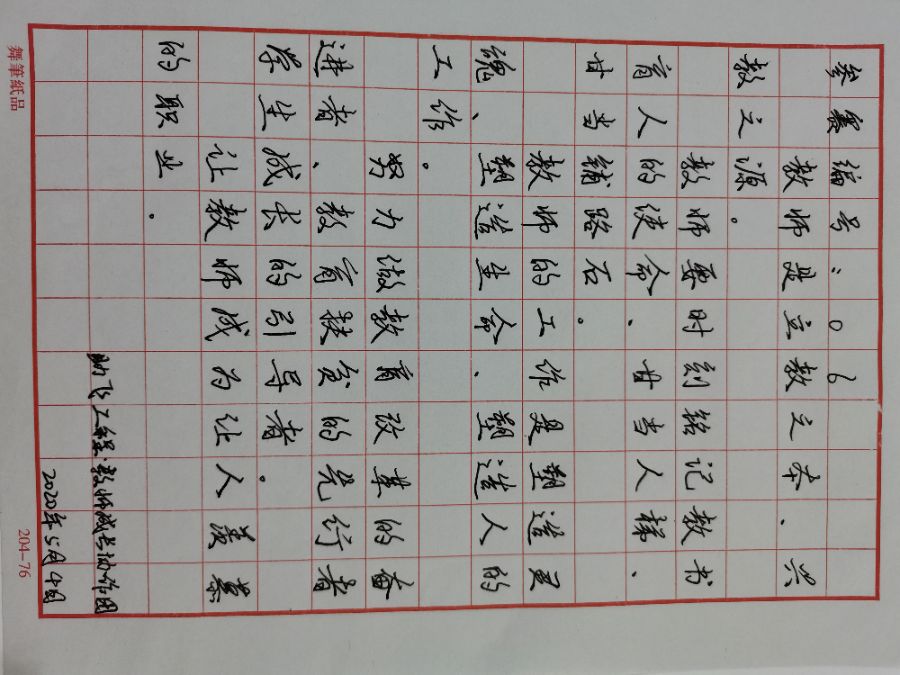 参赛编号:06
教师是立教之本、兴
教之源。
教师要时刻铭记教书
育人的使命、甘当人梯、
甘当铺路石。
教师的工作是塑造灵
魂、塑造生命、塑造人的
工作。
努力做教育改革的奋
进者、教育扶贫的先行者
学生成长的引导者。
让教师成为让人羡慕
的职业.
助飞工程·教师成长协作团
2020年5月4日
舞筆紙品
204-76